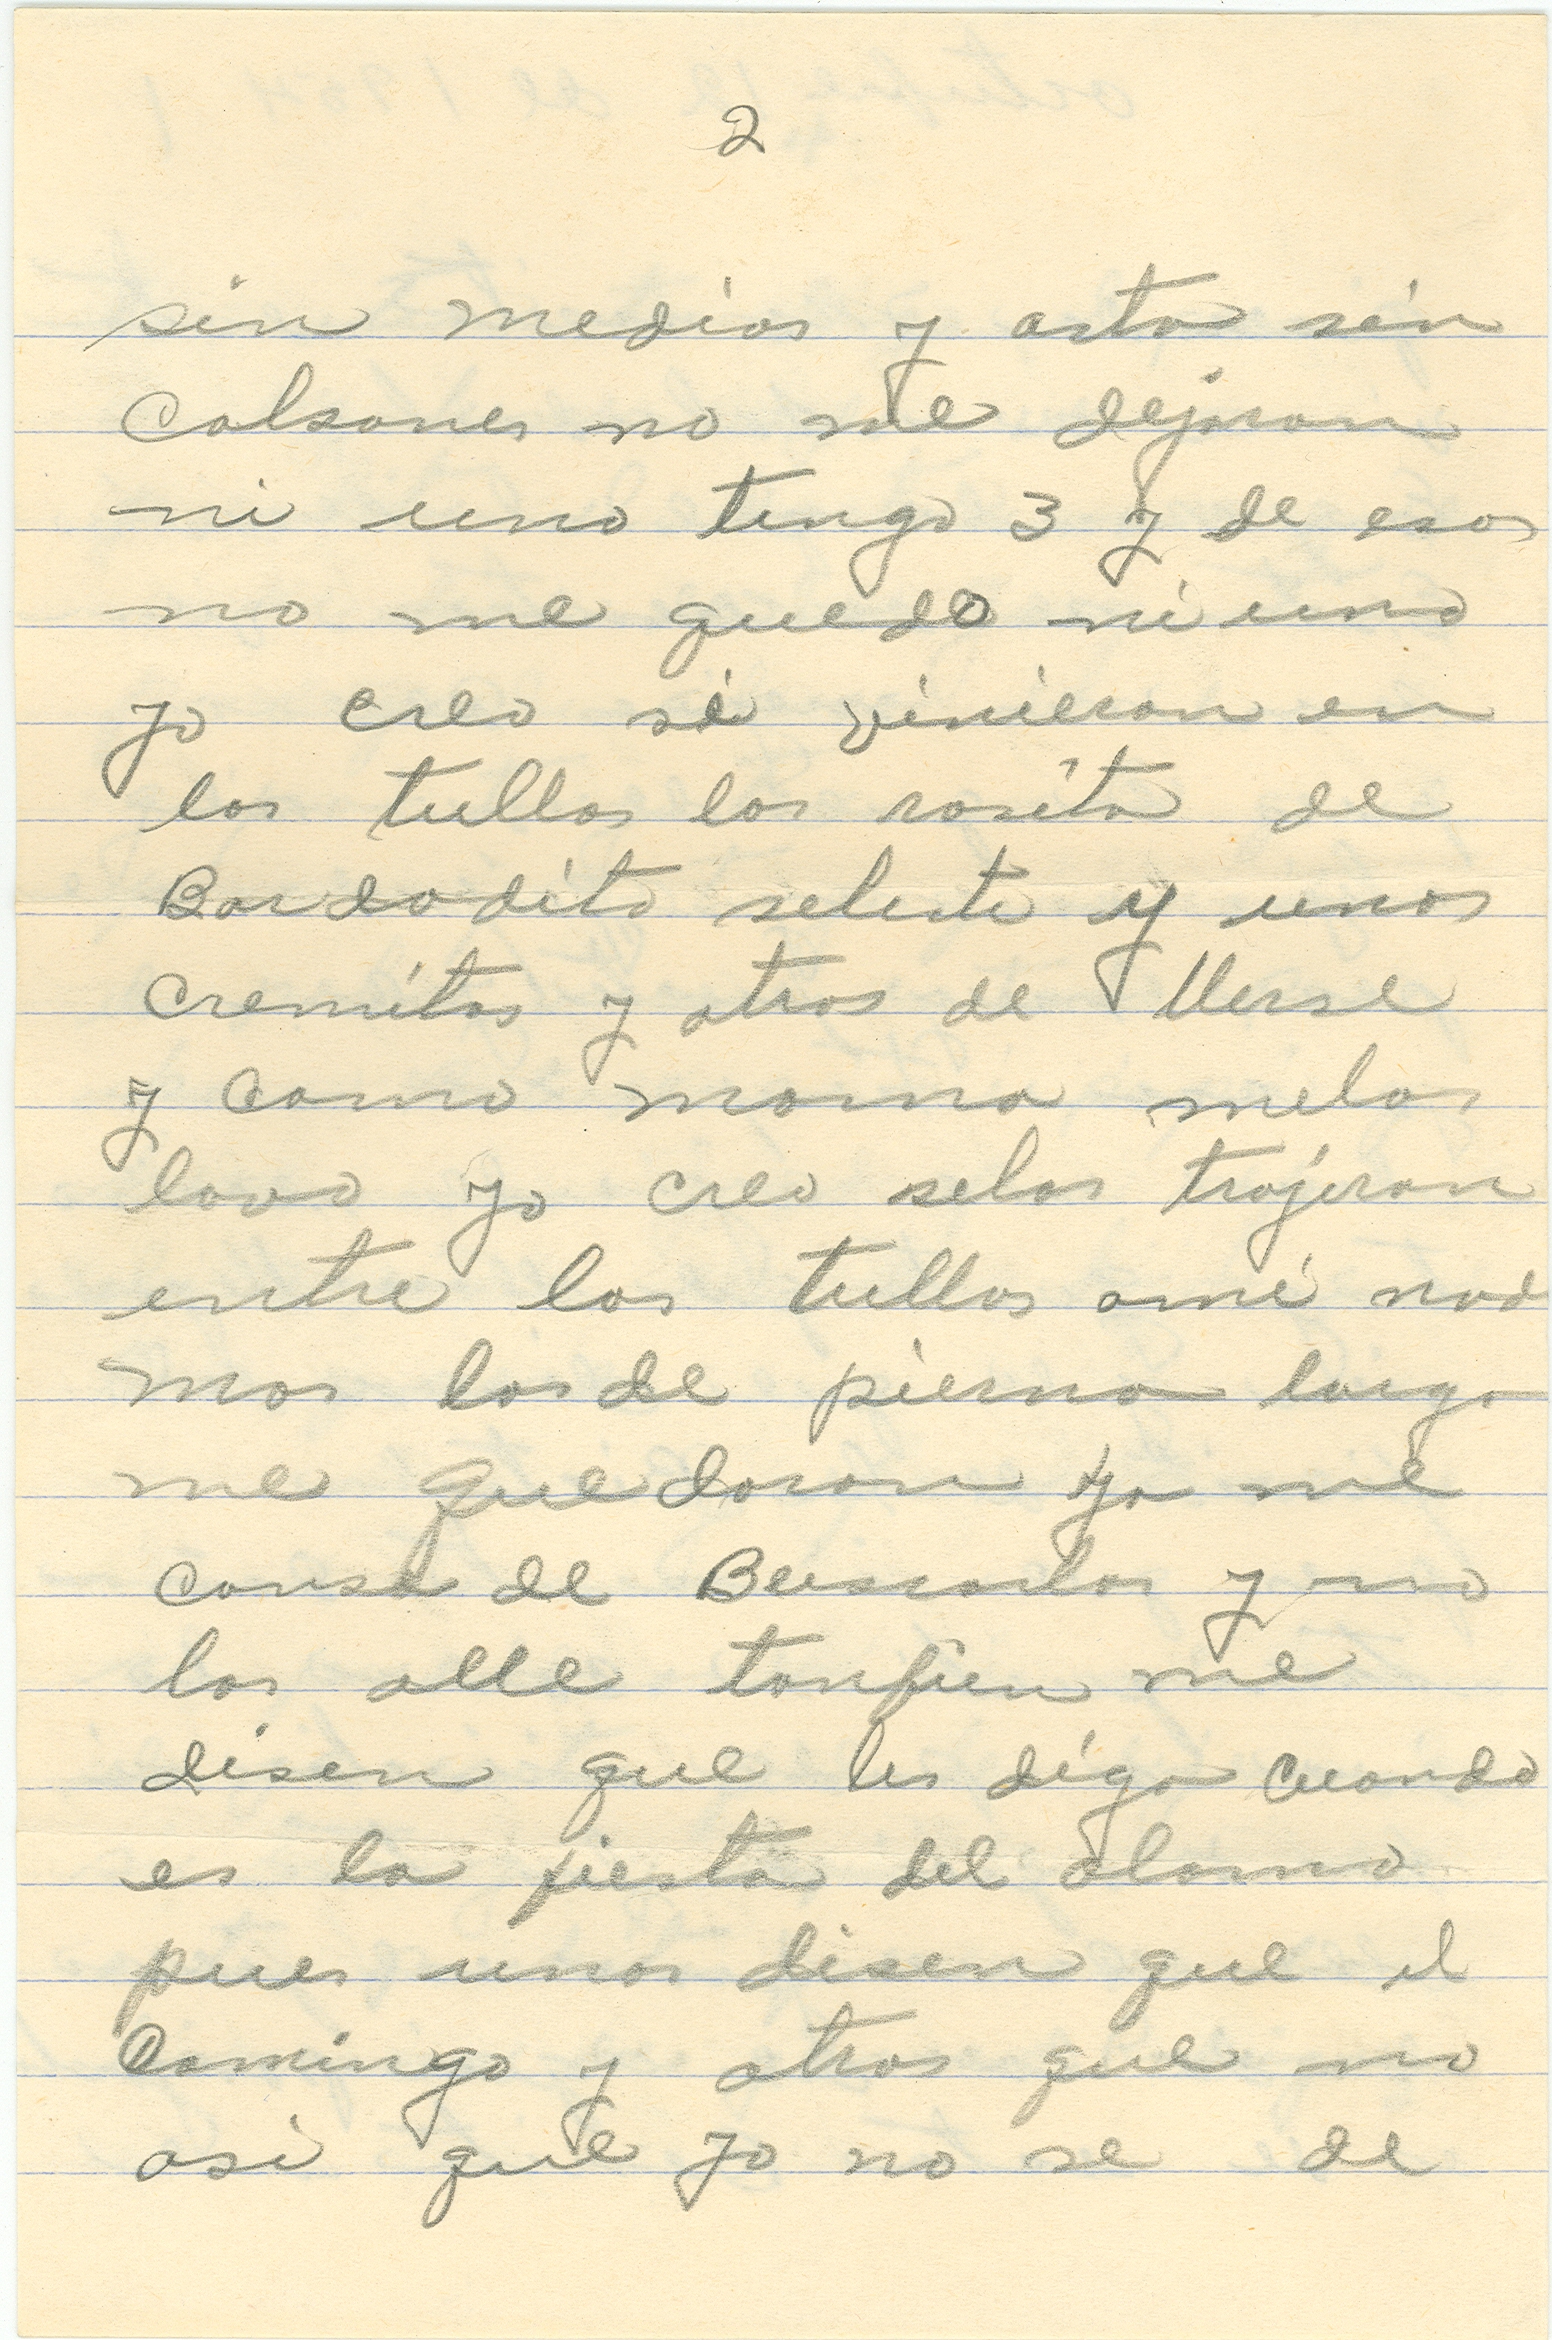 2
sin medias y asta sin
Calsones no me dejaron
ni uno tengo 3 y de esos
no me quedo ni uno
yo creo si vinieron en
los tullos los rosita de
Bordadito seleste y unos
cremitas y otros de llerse
y como mama melos
lavo yo creo selos trajeron
entre los tullos ami nad
mas losde pierna larga
me quedaron ya me
canse de Buscarlos y no
los alle tanfien me
disen que les diga cuando
es la fiesta del alamo
pues unos disen que el
Domingo y otros que no
asi que yo no se de